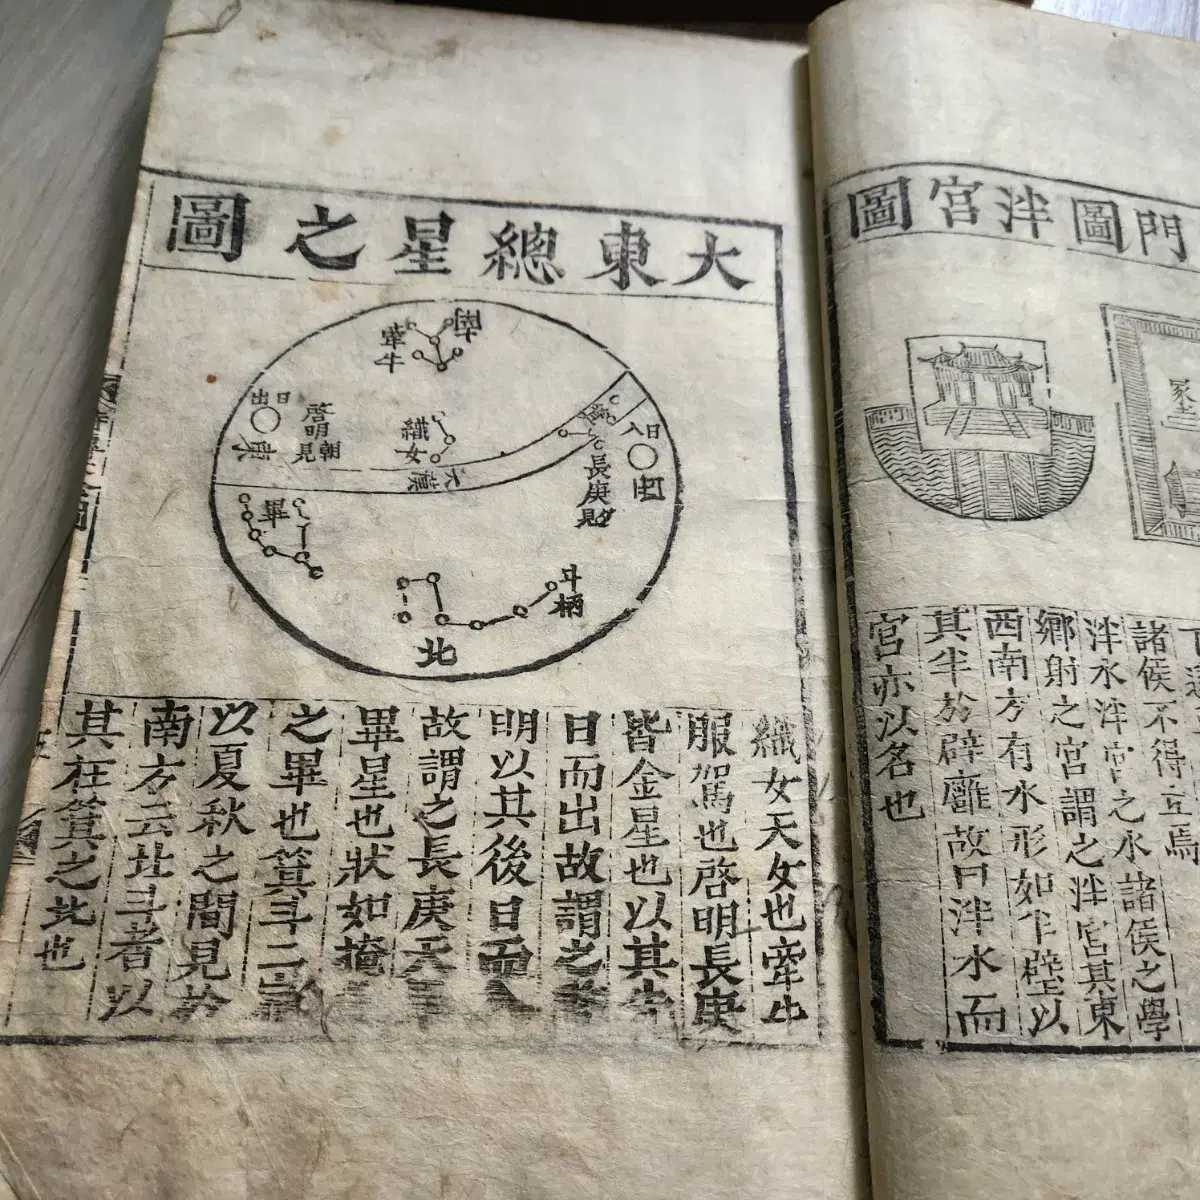 門圖泮宮圖
諸侯不得立焉
泮水泮宮之水諸侯之學
鄉射之宮謂之泮宮其東
西南方有水形如半壁以
其半於辟廱故曰泮水而
宮亦以名也
大東總星之圖
南
牽牛
日出
東
啓明朝見
織女
天漢
日入
酉
長庚
畢
斗柄
北
織女天女也牽牛
服駕也啓明長庚
皆金星也以其先
日而出故謂之啓
明以其後日而入
故謂之長庚天畢
畢星也狀如掩
之畢也箕斗二宿
以夏秋之間見於
南方云北斗者以
其在箕之北也